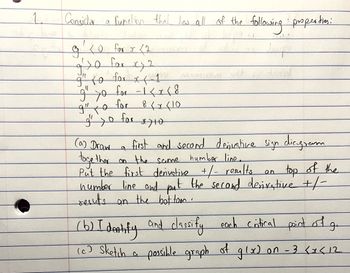 1. Consider a function that has all of the following properties:
g' < 0 for x < 2
g' > 0 for x > 2
g" < 0 for x < -1
g" > 0 for -1 < x < 8
g" < 0 for 8 < x < 10
g" > 0 for x > 10
(a) Draw a first and second derivative sign diagram
together on the same number line.
Put the first derivative +/- results on top of the
number line and put the second derivative +/-
results on the bottom.
(b) Identify and classify each critical point of g.
(c) Sketch a possible graph of g(x) on -3 < x < 12